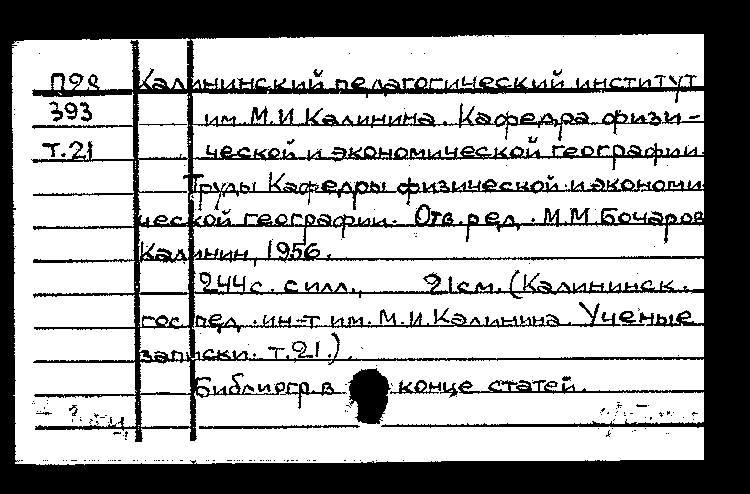 П28 Калининский педагогический институт
393 им. М.И. Калинина. Кафедра физи-
т.21 ческой и экономической географии.
Труды Кафедры физической и экономи
ческой географии. Отв. ред. М.М. Бочаров
Калинин, 1956.
244с. с илл., 21см. (Калининск.
гос пед. ин-т им. М.И. Калинина. Ученые
записки. т.21.).
Библиогр. в конце статей.